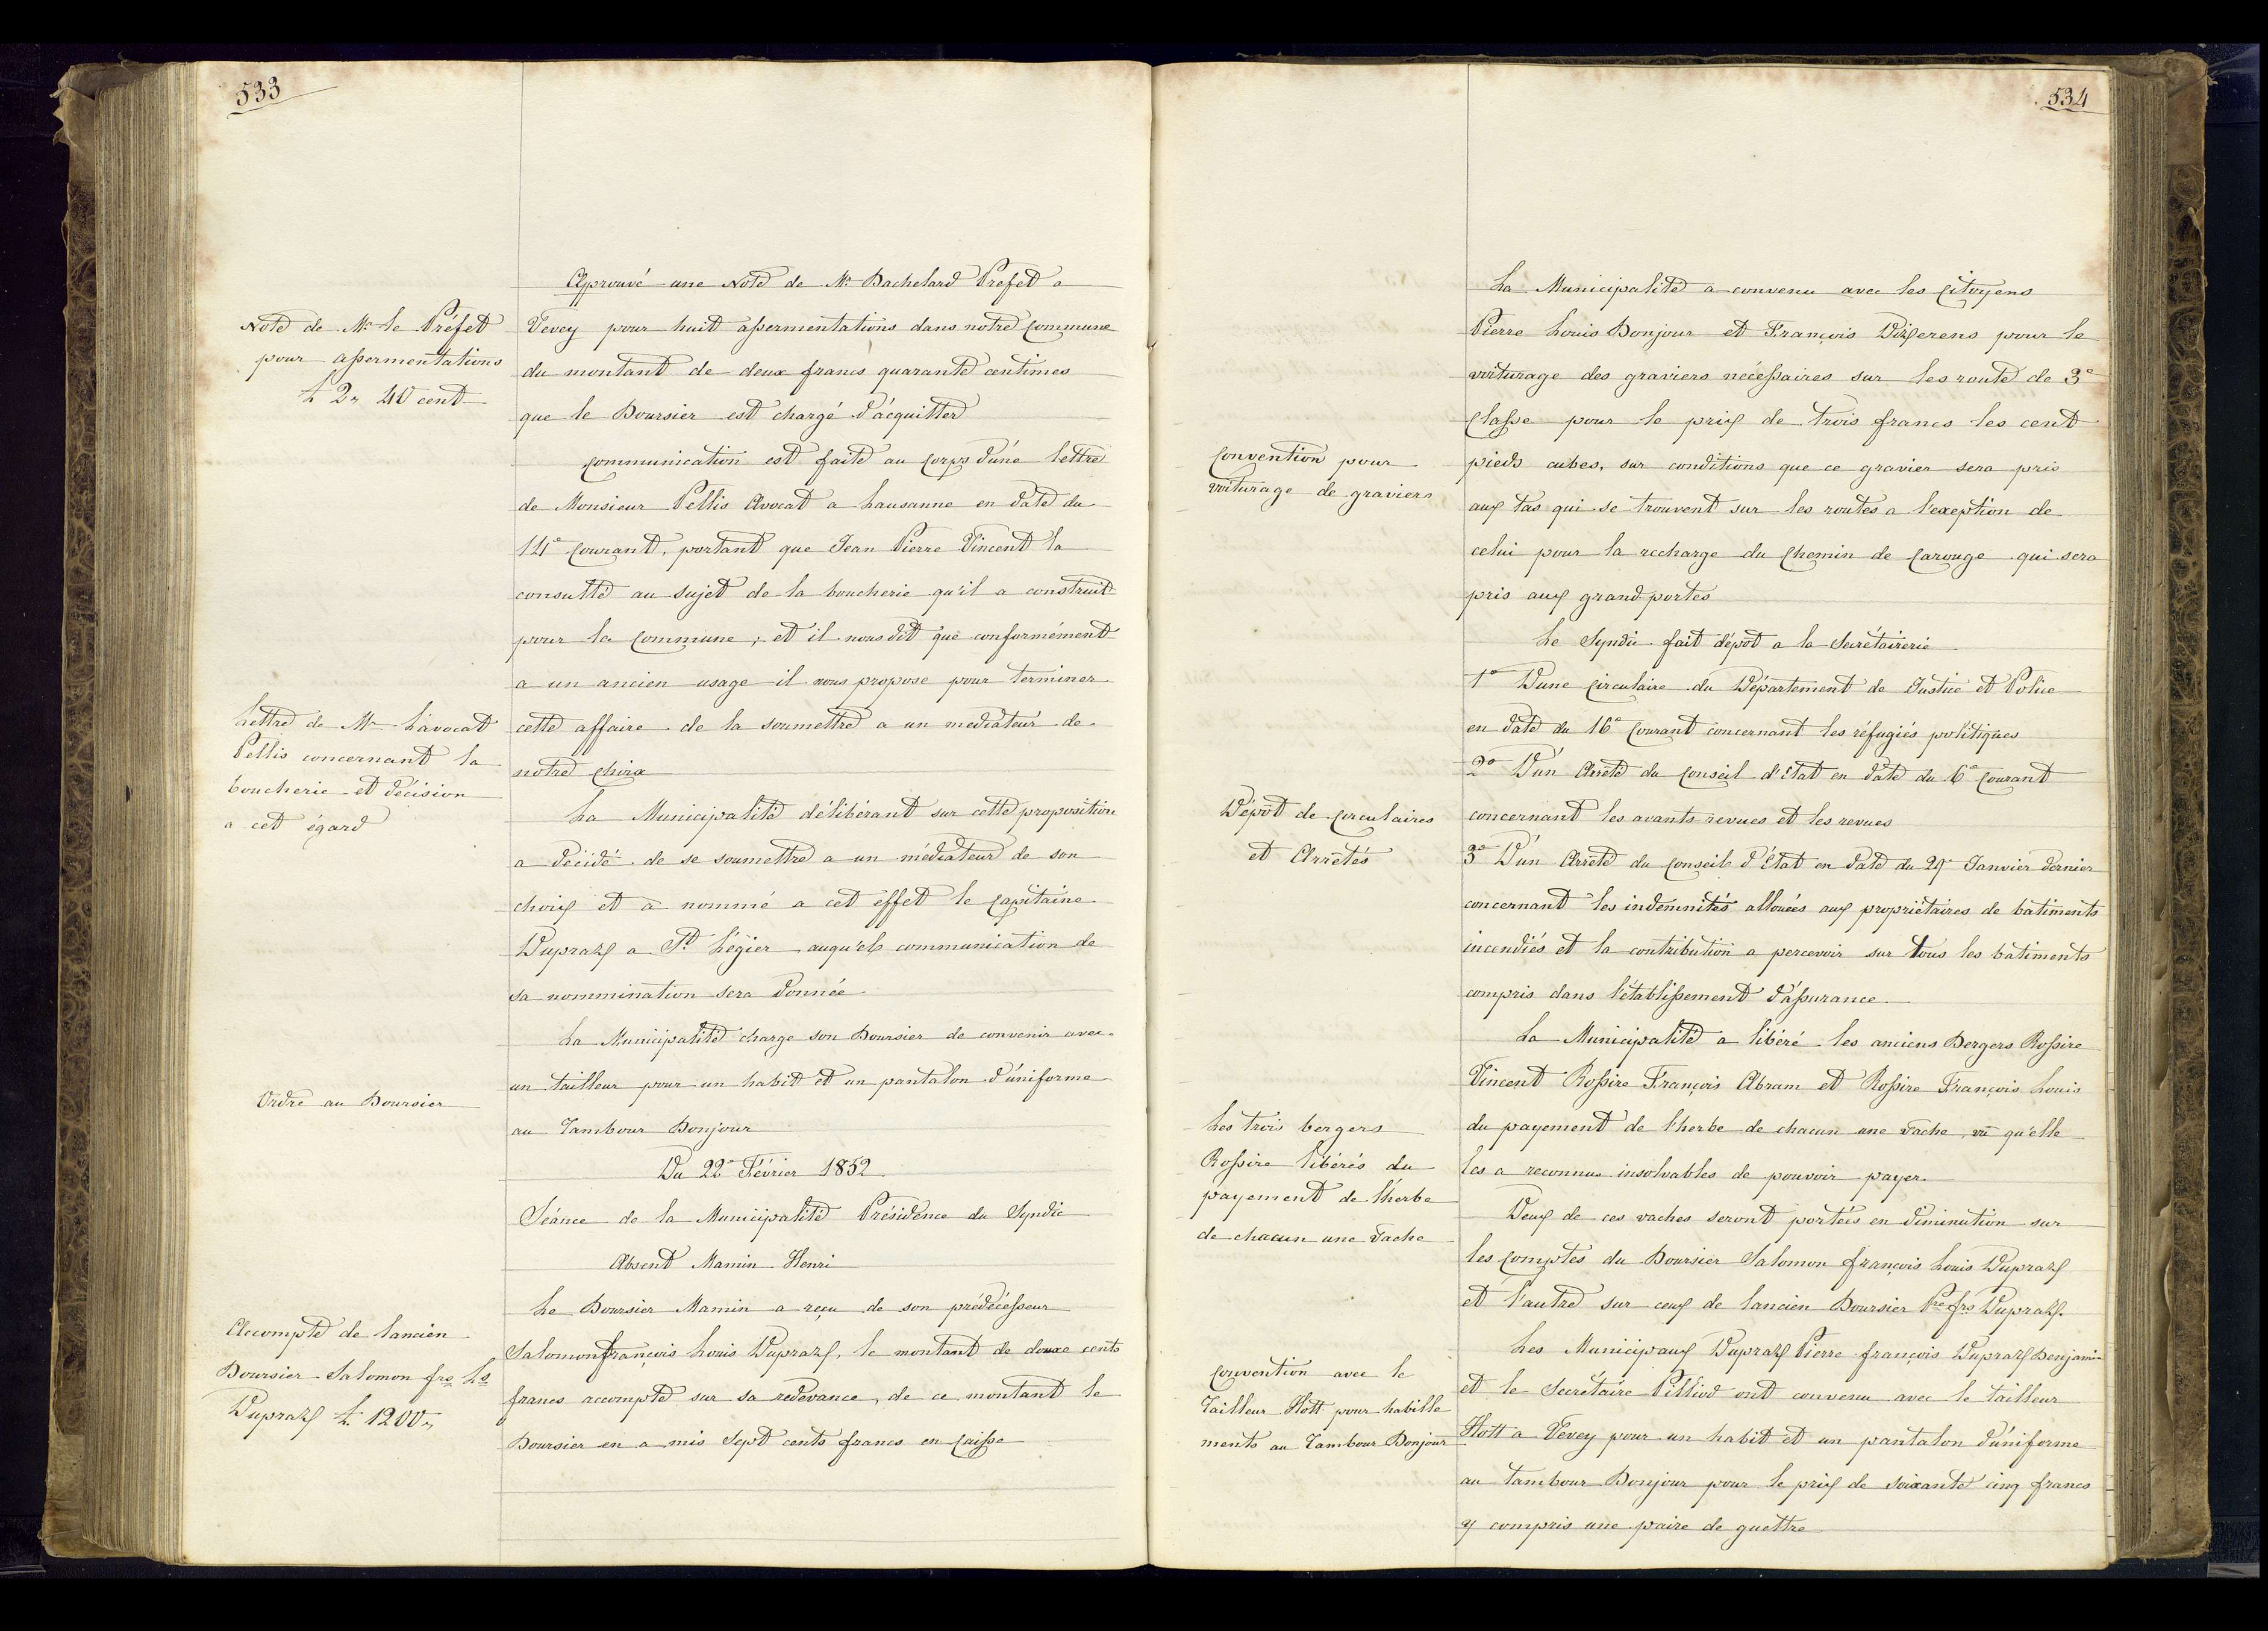 533
Aprouvé une Note de Mr Bachelard Préfet a
Note de Mr le Préfet
pour assermentations
£ 2 „ 40 cent
Vevey pour huit assermentations dans notre Commune
du montant de deux francs quarante centimes
que le Boursier est chargé d'acquitter
Communication est faite au Corps d'une lettre
de Monsieur Pellis Avocat a Lausanne en date du
14e Courant, portant que Jean Pierre Vincent la
consulté au sujet de la boucherie qu'il a construit
pour la Commune ; et il nous dit que conformément
a un ancien usage il nous propose pour terminer
Lettre de Mr L'avocat
Pellis concernant la
boucherie et décision
a cet égard
cette affaire de la soumettre a un médiateur de
notre Choix
La Municipalité délibérant sur cette proposition
a décidé de se soumettre a un médiateur de son
choix et a nommé a cet effet le Capitaine
Dupraz a St Légier auqu'el communication de
sa nommination sera donnée
La Municipalité charge son Boursier de convenir avec
Ordre au Boursier
un tailleur pour un habit et un pantalon d'uniforme
au Tambour Bonjour
Du 22e Février 1852
Séance de la Municipalité Présidence du Syndic
Absent Mamin Henri
Le Boursier Mamin a reçu de son prédécesseur
Accompte de lancien
Boursier Salomon frs Ls
Dupraz £ 1200 „
Salomon françois Louis Dupraz, le montant de douxe cents
francs accompte sur sa redevance, de ce montant le
Boursier en a mis Sept cents francs en Caisse
534
La Municipalité a convenu avec les Citoyens
Pierre Louis Bonjour et François Dizerens pour le
voiturage des graviers nécessaires sur les route de 3e
Classe pour le prix de trois francs les cent
Convention pour
voiturage de graviers
pieds cubes, sur conditions que ce gravier sera pris
aux tas qui se trouvent sur les routes a l'exeption de
celui pour la recharge du Chemin de Carouge qui sera
pris aux grand portes
Le Syndic fait dépot a la Secrétairerie
1o D'une Circulaire du Département de Justice et Police
en date du 16e Courant concernant les réfugiés politiques
2o D'un Arrêté du Conseil d'Etat en date du 6e Courant
Dépôt de Circulaires
et Arrêtés
concernant les avants revues et les revues
3o D'un Arrêté du Conseil d'Etat en date du 29e Janvier dernier
concernant les indemnités allouées aux propriétaires de batiments
incendiés et la contribution a percevoir sur tous les batiments
compris dans l'établissement d'assurance
La Municipalité a libéré les anciens Bergers Rossire
Vincent Rossire François Abram et Rossire François Louis
Les trois bergers
Rossire libérés du
payement de l'herbe
de chacun une Vache
du payement de l'herbe de chacun une Vache, vû qu'elle
les a reconnus insolvables de pouvoir payer
Deux de ces vaches seront portées en diminution sur
les Comptes du Boursier Salomon françois Louis Dupraz
et l'autre sur ceux de lancien Boursier Pre frs Dupraz.
Les Municipaux Dupraz Pierre françois Dupraz Benjamin
Convention avec le
Tailleur Hott pour habille
ments au Tambour Bonjour
et le Secrétaire Pilliod ont convenu avec le tailleur
Hott a Vevey pour un habit et un pantalon d'uniforme
au Tambour Bonjour pour le prix de soixante cinq francs
y compris une paire de guettre